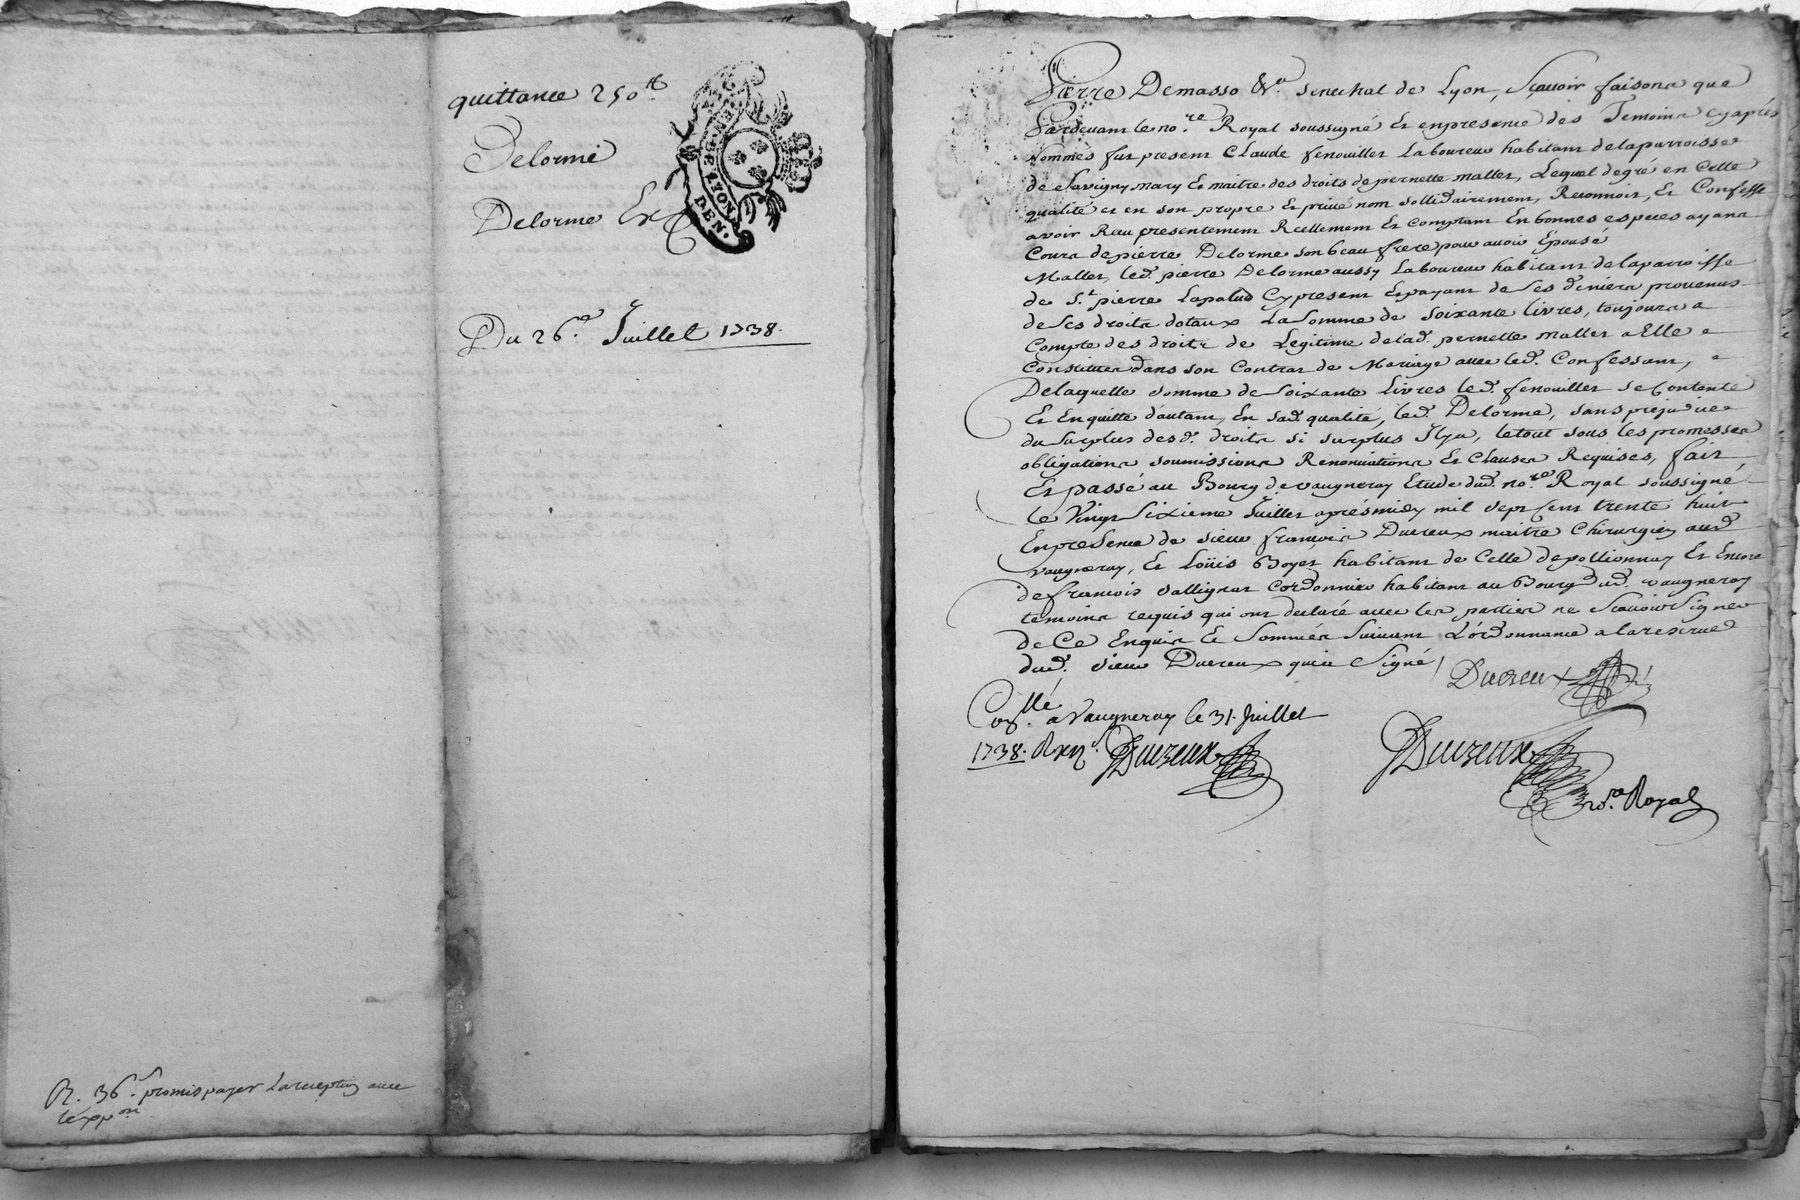 quittance 250 tt
Delorme
Delorme Ex
GEN. DE LYON DEN.
Du 26.e Juillet 1738.
R. 36 s promis payer
Pierre Demasso &.a senechal de Lyon, Sçavoir faisons que
Pardevant le no.re Royal soussigné Et en presence des Temoins cyaprés
Nommés fut present Claude fenouillet Laboureur habitant delaparroisse
de Savigny mary Et maitre des droits de pernette mallet, Lequel degré en Cette
qualité et en son propre Et privé nom sollidairement, Reconnoit, Et Confesse
avoir Receu presentement Reellement Et Comptant En bonnes especes ayant
Cours de pierre Delorme son beau frere pour avoir Épousé
Mallet, led. pierre Delorme aussy Laboureur habitant delaparroisse
de S.t pierre Lapalud Cy present Et payant de ses deniers provenus
de ses droits dotaux La somme de soixante livres, toujours a
Compte des droits de Legitime delad. pernette mallet a Elle
Constitués dans son Contrat de Mariage avec led. Confessant,
Delaquelle somme de soixante Livres led. fenouillet se Contente
Et En quitte d'autant, En sad. qualité, led. Delorme, sans prejudice
du surplus desd. droits si surplus Il y a, le tout sous les promesses
obligations soumissions Renonciations Et Clauses Requises, fait
Et passé au Bourg de vaugneray Etude dud. no.re Royal soussigné
le Vingt Sixieme Juillet aprés midy mil sept Cent trente huit
En presence de sieur françois Ducreux maitre Chirurgien aud.
vaugneray, Et Loüis Boyer habitant de Celle de pollionnay Et Encore
de francois vallignat Cordonnier habitant au Bourg dud. vaugneray
temoins requis qui ont declaré avec les parties ne Scavoir Signer
de Ce Enquis Et Sommés Suivant L'ordonnance a la reserve
dud. sieur Ducreux qui a Signé / Ducreux
Con.llé a Vaugneray le 31. Juillet
1738. Ducreux
Ducreux
no.re Royal